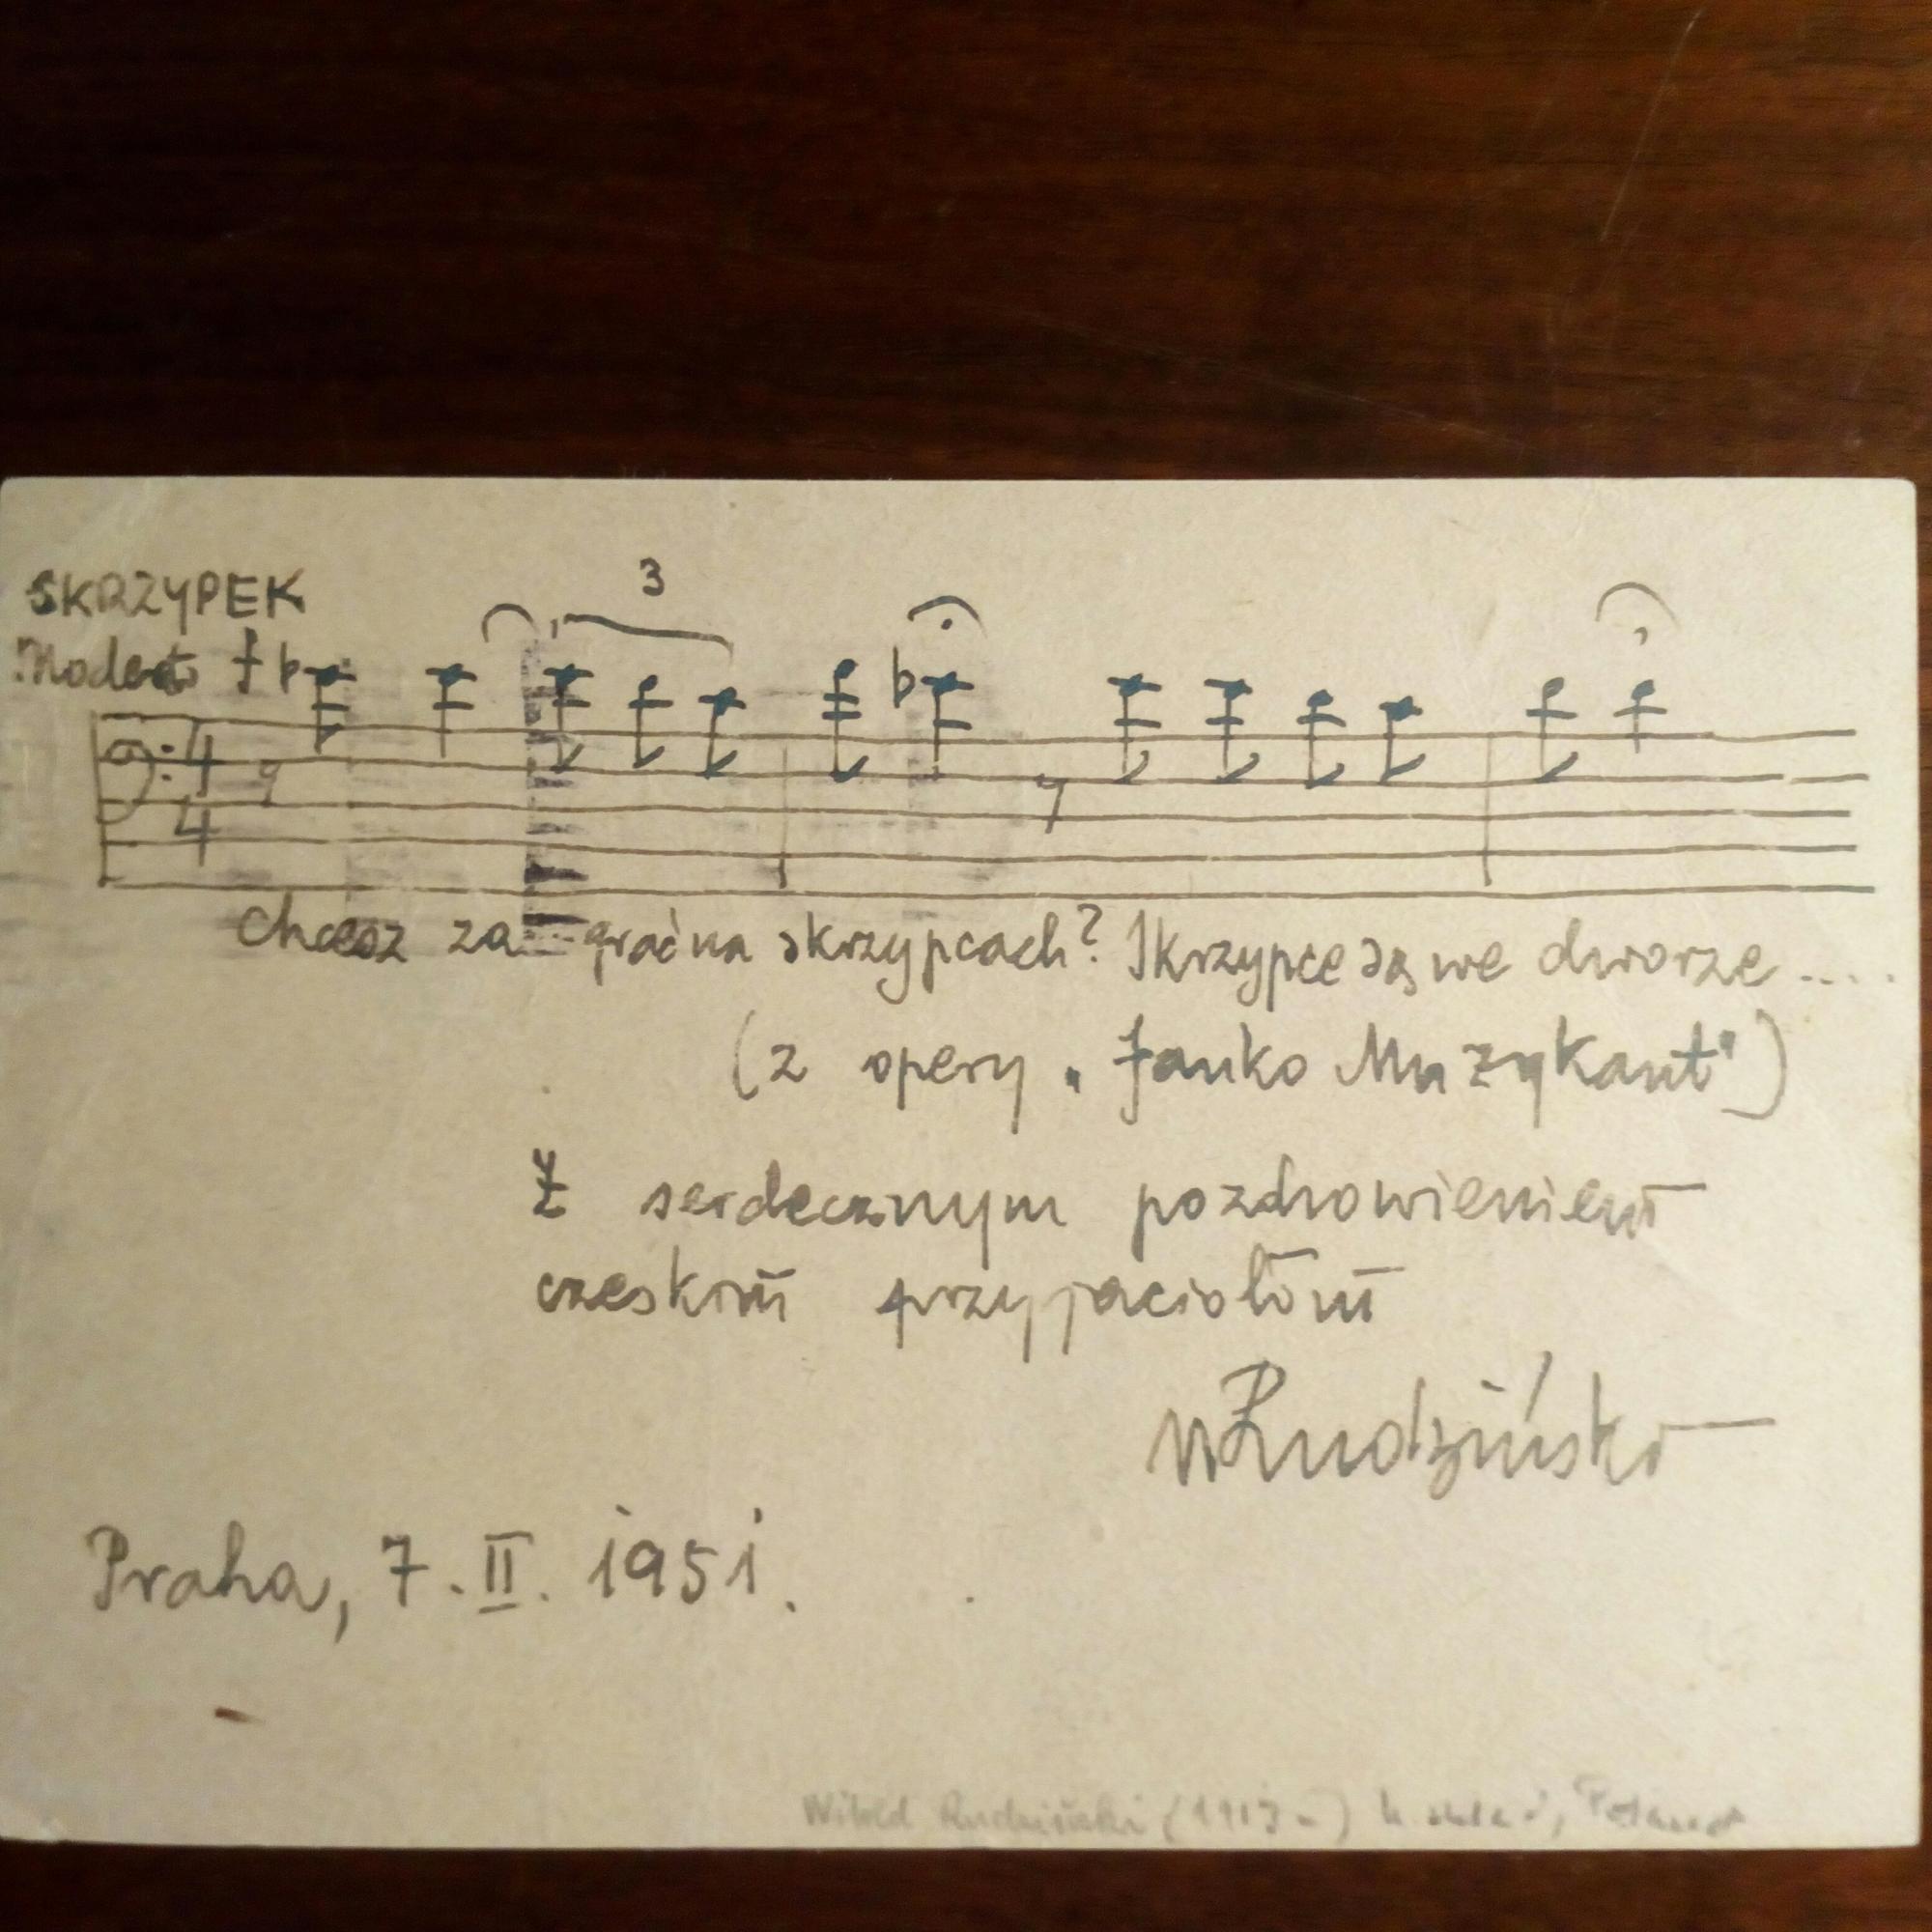 SKRZYPEK
Moderato f
3
4
4
Chcesz zagrać na skrzypcach? Skrzypce są we dworze ....
(z opery „Janko Muzykant")
Z serdecznym pozdrowieniem
czeskim przyjaciołom
WRudziński
Praha, 7. II. 1951.
Witold Rudziński (1913-) Poland